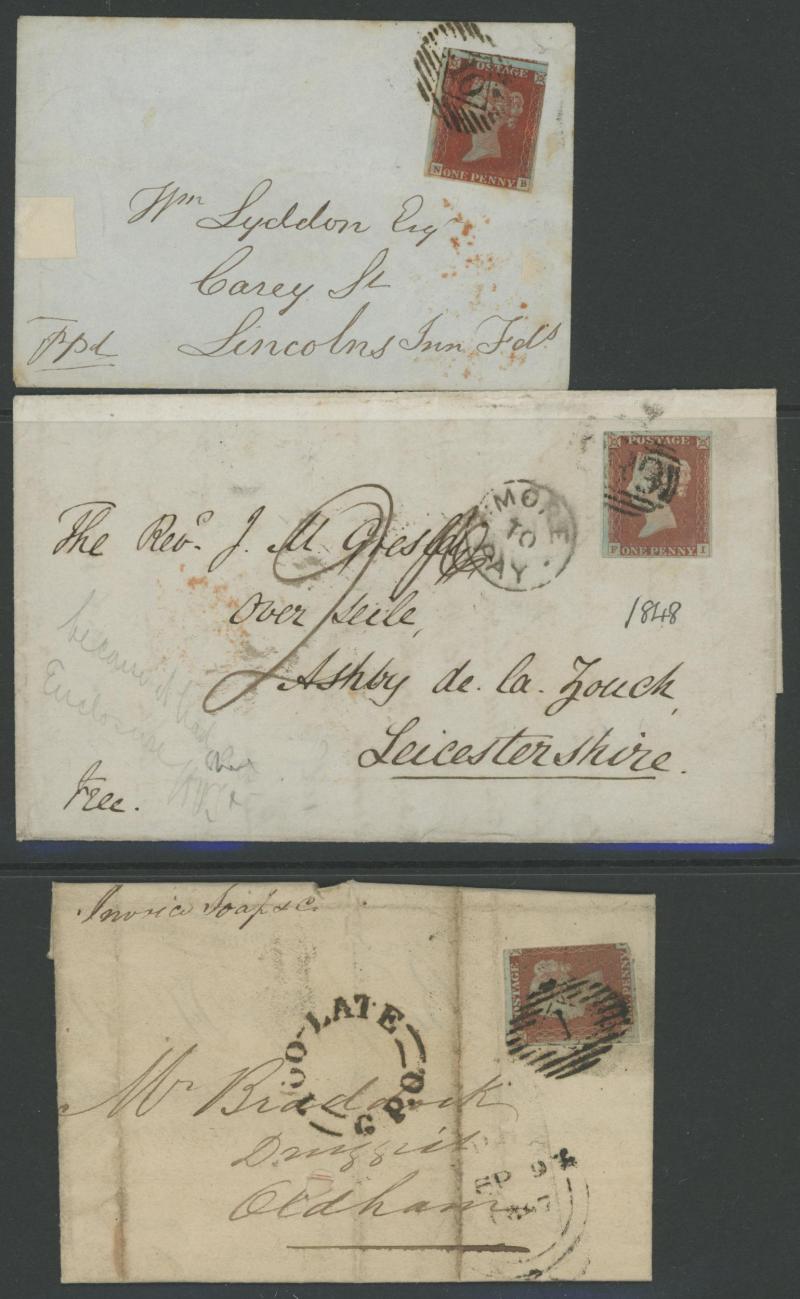 POSTAGE
N ONE PENNY B
Wm Lyddon Esqr
Carey St
Lincolns Inn Fds
Ppd
POSTAGE
F ONE PENNY I
MORE
TO
PAY
The Revd. J. M
2
Over Seile,
1848
Ashby de la Zouch,
Leicestershire.
Enclosure
Free.
Invoice Soap &c.
POSTAGE
TOO-LATE
G.P.O.
1
Mr Braddock
Druggist
Oldham